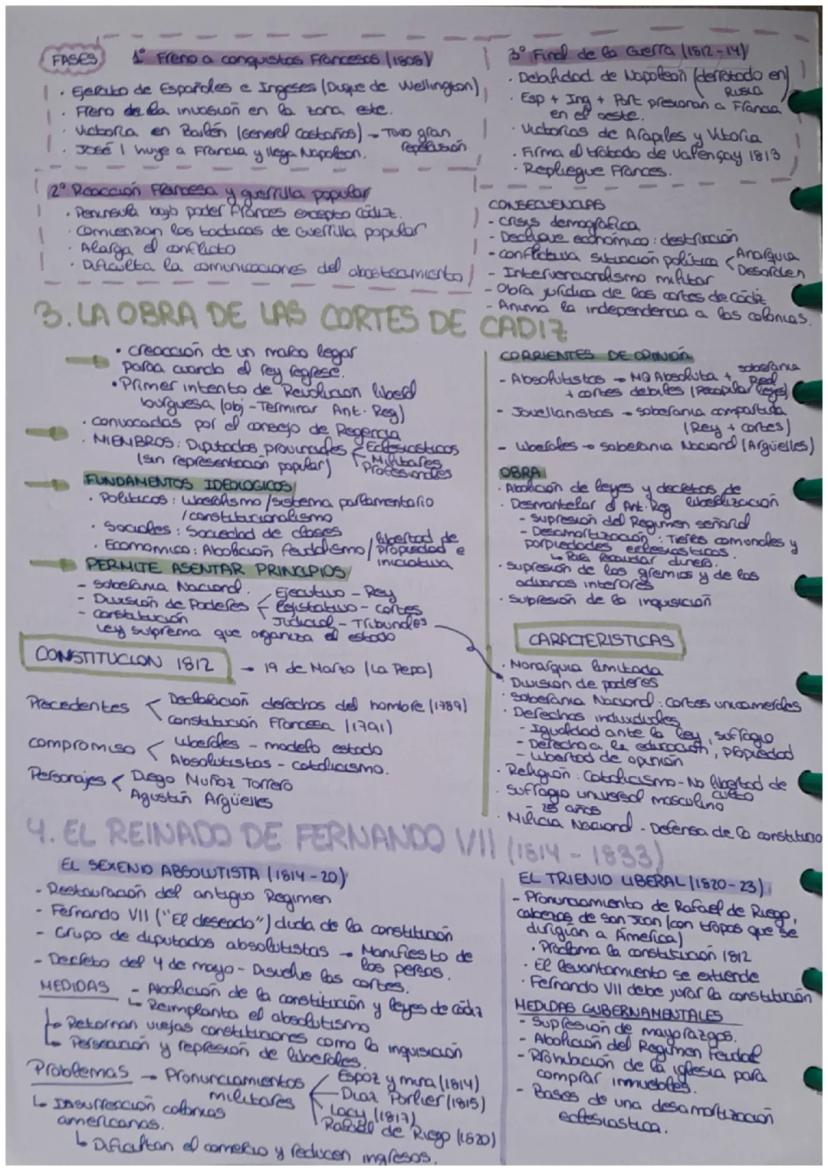 FASES
1º Freno a conquistas Francesas (1808)
· Ejercito de Españoles e Ingeses (Duque de Wellington)
· Freno de la invasión en la zona este.
· Victoria en Bailén (General Castaños) → Tuvo gran
repercusión
· José I huye a Francia y llega Napoleon.
2º Reacción Francesa y guerrilla popular
· Peninsula bajo poder Frances excepto Cádiz.
· Comienzan las tacticas de Guerrilla popular
· Alarga el conflicto
· Dificulta la comunicaciones del abastecimiento
3º Final de la Guerra (1812-14)
· Debilidad de Napoleón (derrotado en
Rusia)
· Esp + Ing + Port presionan a Francia
en el oeste.
· Victorias de Arapiles y Vitoria
· Firma el tratado de Valençay 1813
· Repliegue Frances.
CONSECUENCIAS
- Crisis demográfica
- Declive económico: destrucción
- Conflictiva situación política < Anarquia
Desorden
- Intervencionalismo militar
- Obra jurídica de las cortes de cádiz
- Anima la independencia a las colonias.
3. LA OBRA DE LAS CORTES DE CADIZ
· creacción de un marco legar
para cuando el rey regrese.
· Primer intento de Revolucion liberal
burguesa (obj - Terminar Ant. Reg)
· convocadas por el consejo de Regencia
· MIEMBROS: Diputados provinciales < Eclesiasticos
Militares
Profesionales
(sin representación popular)
FUNDAMENTOS IDEOLOGICOS
· Politicos: liberalismo/sistema parlamentario
/constitucionalismo
· Sociales: Sociedad de clases
· Economico: Abolición feudalismo / libertad de
propiedad e
iniciativa
PERMITE ASENTAR PRINCIPIOS
- Soberania Nacional.
- División de Poderes < Ejecutivo - Rey
Legislativo - cortes
Judicial - Tribunales
- constitución
Ley suprema que organiza el estado
CORRIENTES DE OPINIÓN
- Absolutistas → MQ Absoluta + soberania
Real
+ cortes debiles (Recopilar leyes)
- Jovellanistas → soberania compartida
(Rey + cortes)
- liberales → soberania Nacional (Argüelles)
OBRA
· Abolición de leyes y decretos de
liberalización
· Desmantelar el Ant. Reg
- Supresión del Regimen señorial
- Desamortización: Tierras comunales y
porpiedades eclesiasticas.
↳ Para recaudar dinero.
· supresión de los gremios y de las
aduanas interiores
· supresión de la inquisición
CONSTITUCION 1812 → 19 de Marzo (La Pepa)
Precedentes < Declaración derechos del hombre (1789)
Constitución Francesa (1791)
compromiso < liberales - modelo estado
Absolutistas - catolicismo.
Personajes < Diego Muñoz Torrero
Agustín Argüelles
CARACTERISTICAS
· Monarquia limitada
· División de poderes
· Soberania Nacional: Cortes unicamerales
· Derechos individuales
- Igualdad ante la ley, sufragio
- Derecho a la educación, propiedad
- libertad de opinión
· Religión: Catolicismo - No libertad de
culto
· Sufragio universal masculino
25 años
· Milicia Nacional - Defensa de la constitucio
4. EL REINADO DE FERNANDO VII (1814 - 1833)
EL SEXENIO ABSOLUTISTA (1814-20)
- Restauración del antiguo Regimen
- Fernando VII ("El deseado") duda de la constitución
- Grupo de diputados absolutistas → Manifiesto de
los persas.
- Decreto del 4 de mayo - Disuelve las cortes.
MEDIDAS - Abolición de la constitución y leyes de cádiz
↳ Reimplanta el absolutismo
↳ Retornan viejas constituciones como la inquisición
↳ Persecución y represión de liberales.
Problemas → Pronunciamientos
militares
Espoz y mina (1814)
Diaz Porlier (1815)
Lacy (1817)
Rafael de Riego (1820)
↳ Insurrección colonias
americanas.
↳ Dificultan el comercio y reducen ingresos.
EL TRIENIO LIBERAL (1820-23)
- Pronunciamiento de Rafael de Riego,
cabezas de San Juan (con tropas que se
dirigian a America)
· Proclama la constitución 1812
· El levantamiento se extiende
· Fernando VII debe jurar la constitución
MEDIDAS GUBERNAMENTALES
- Supresión de mayorazgos.
- Abolición del Regimen Feudal
- Prohibición de la iglesia para
comprar inmuebles.
- Bases de una desamortización
eclesiastica.